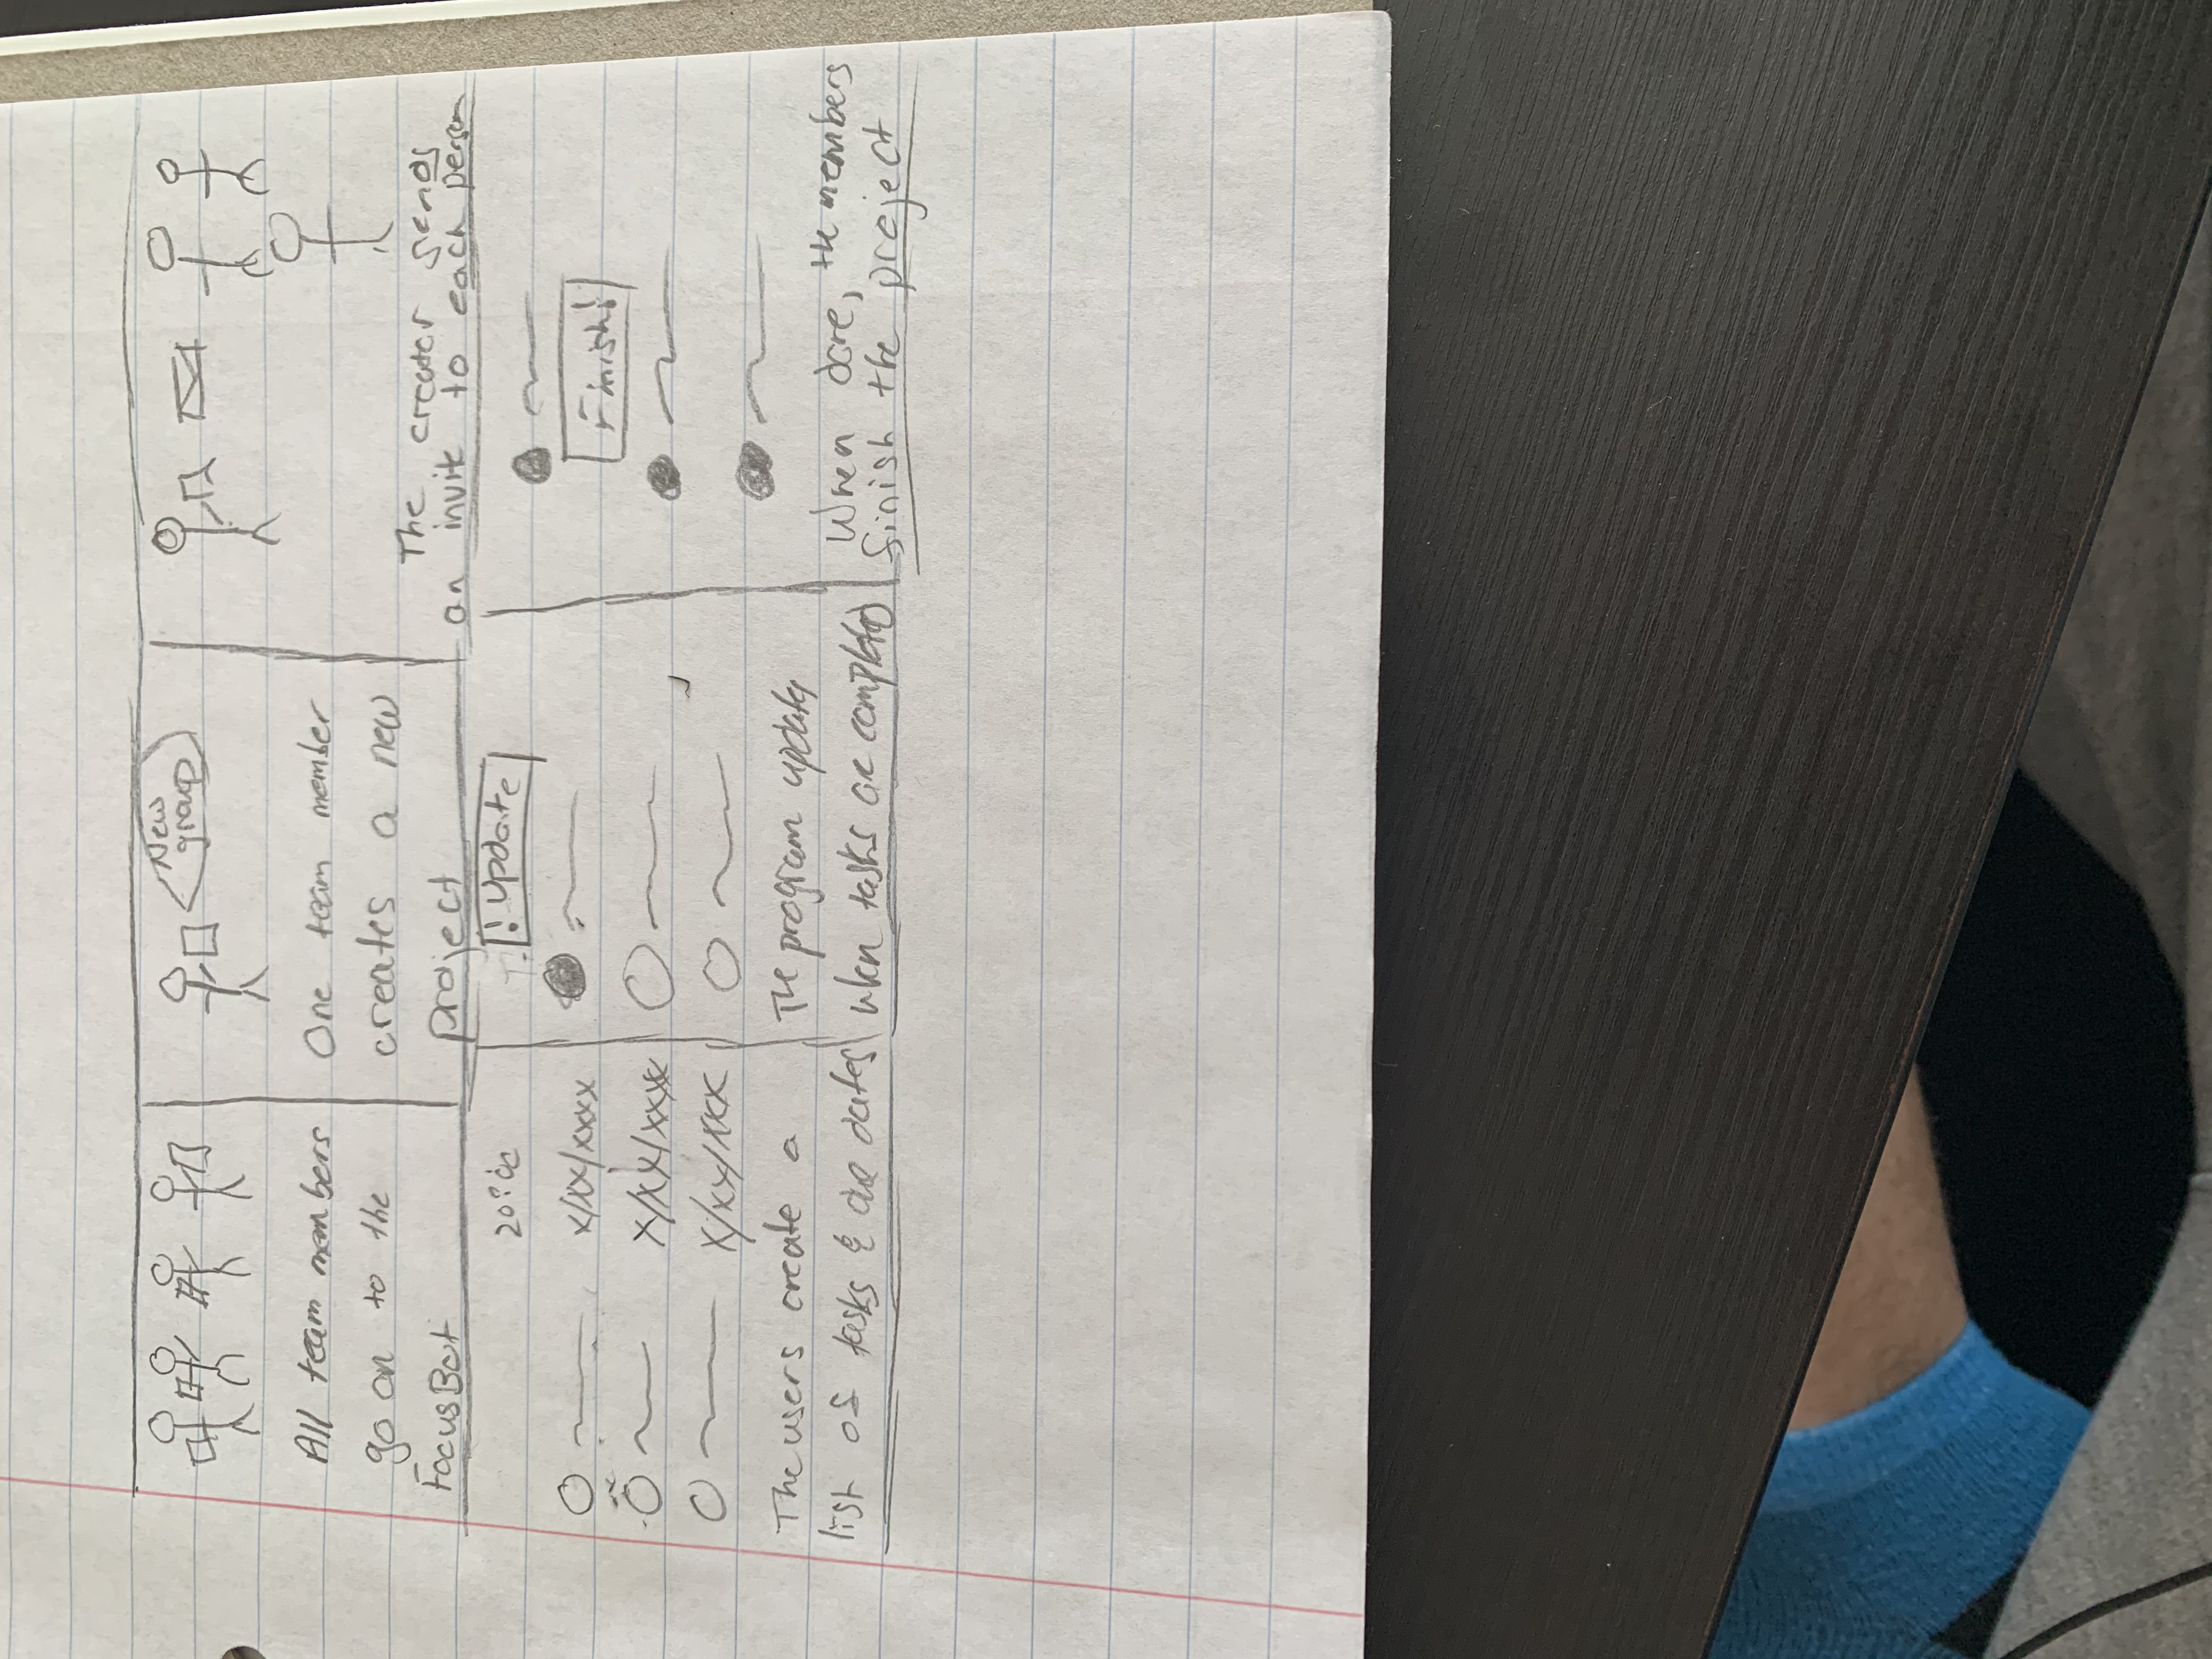 New
group
All team members
go on to the
FocusBot
One team member
creates a new
project
The creator sends
an invite to each person
x/xx/xxxx
x/xx/xxxx
x/xx/xxx
The users create a
list of tasks & due dates
! Update
The program updates
when tasks are completed
Finish!
When done, the members
finish the project